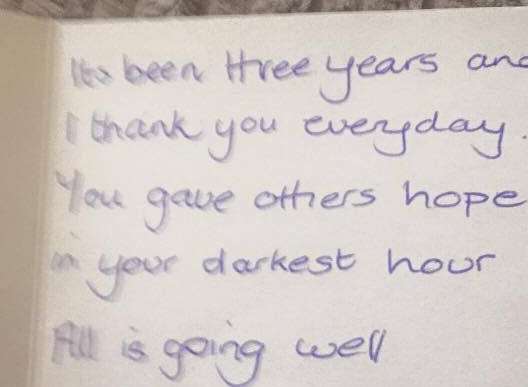 Its been three years and
I thank you everyday.
You gave others hope
in your darkest hour
All is going well